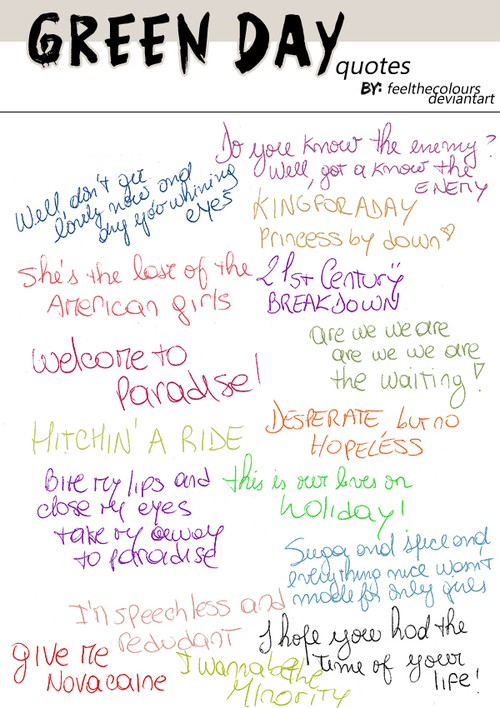 GREEN DAY
quotes
BY: feelthecolours
deviantart
Do you know the enemy?
Well, got a know the
ENEMY
Well don't get
lonely now and
dry your whining
eyes
KING FOR A DAY
Princess by down
She's the last of the
American girls
21st Century
BREAKDOWN
are we we are
are we we are
the waiting!
Welcome to
Paradise!
DESPERATE but no
HOPELESS
HITCHIN' A RIDE
Bite my lips and
close my eyes
take my away
to paradise
this is our lives on
holiday!
Suga and spice and
everything nice wasn't
made for only girls
I'm speechless and
redudant
I hope you had the
time of your
life!
give me
Novacaine
I wanna be the
Minority